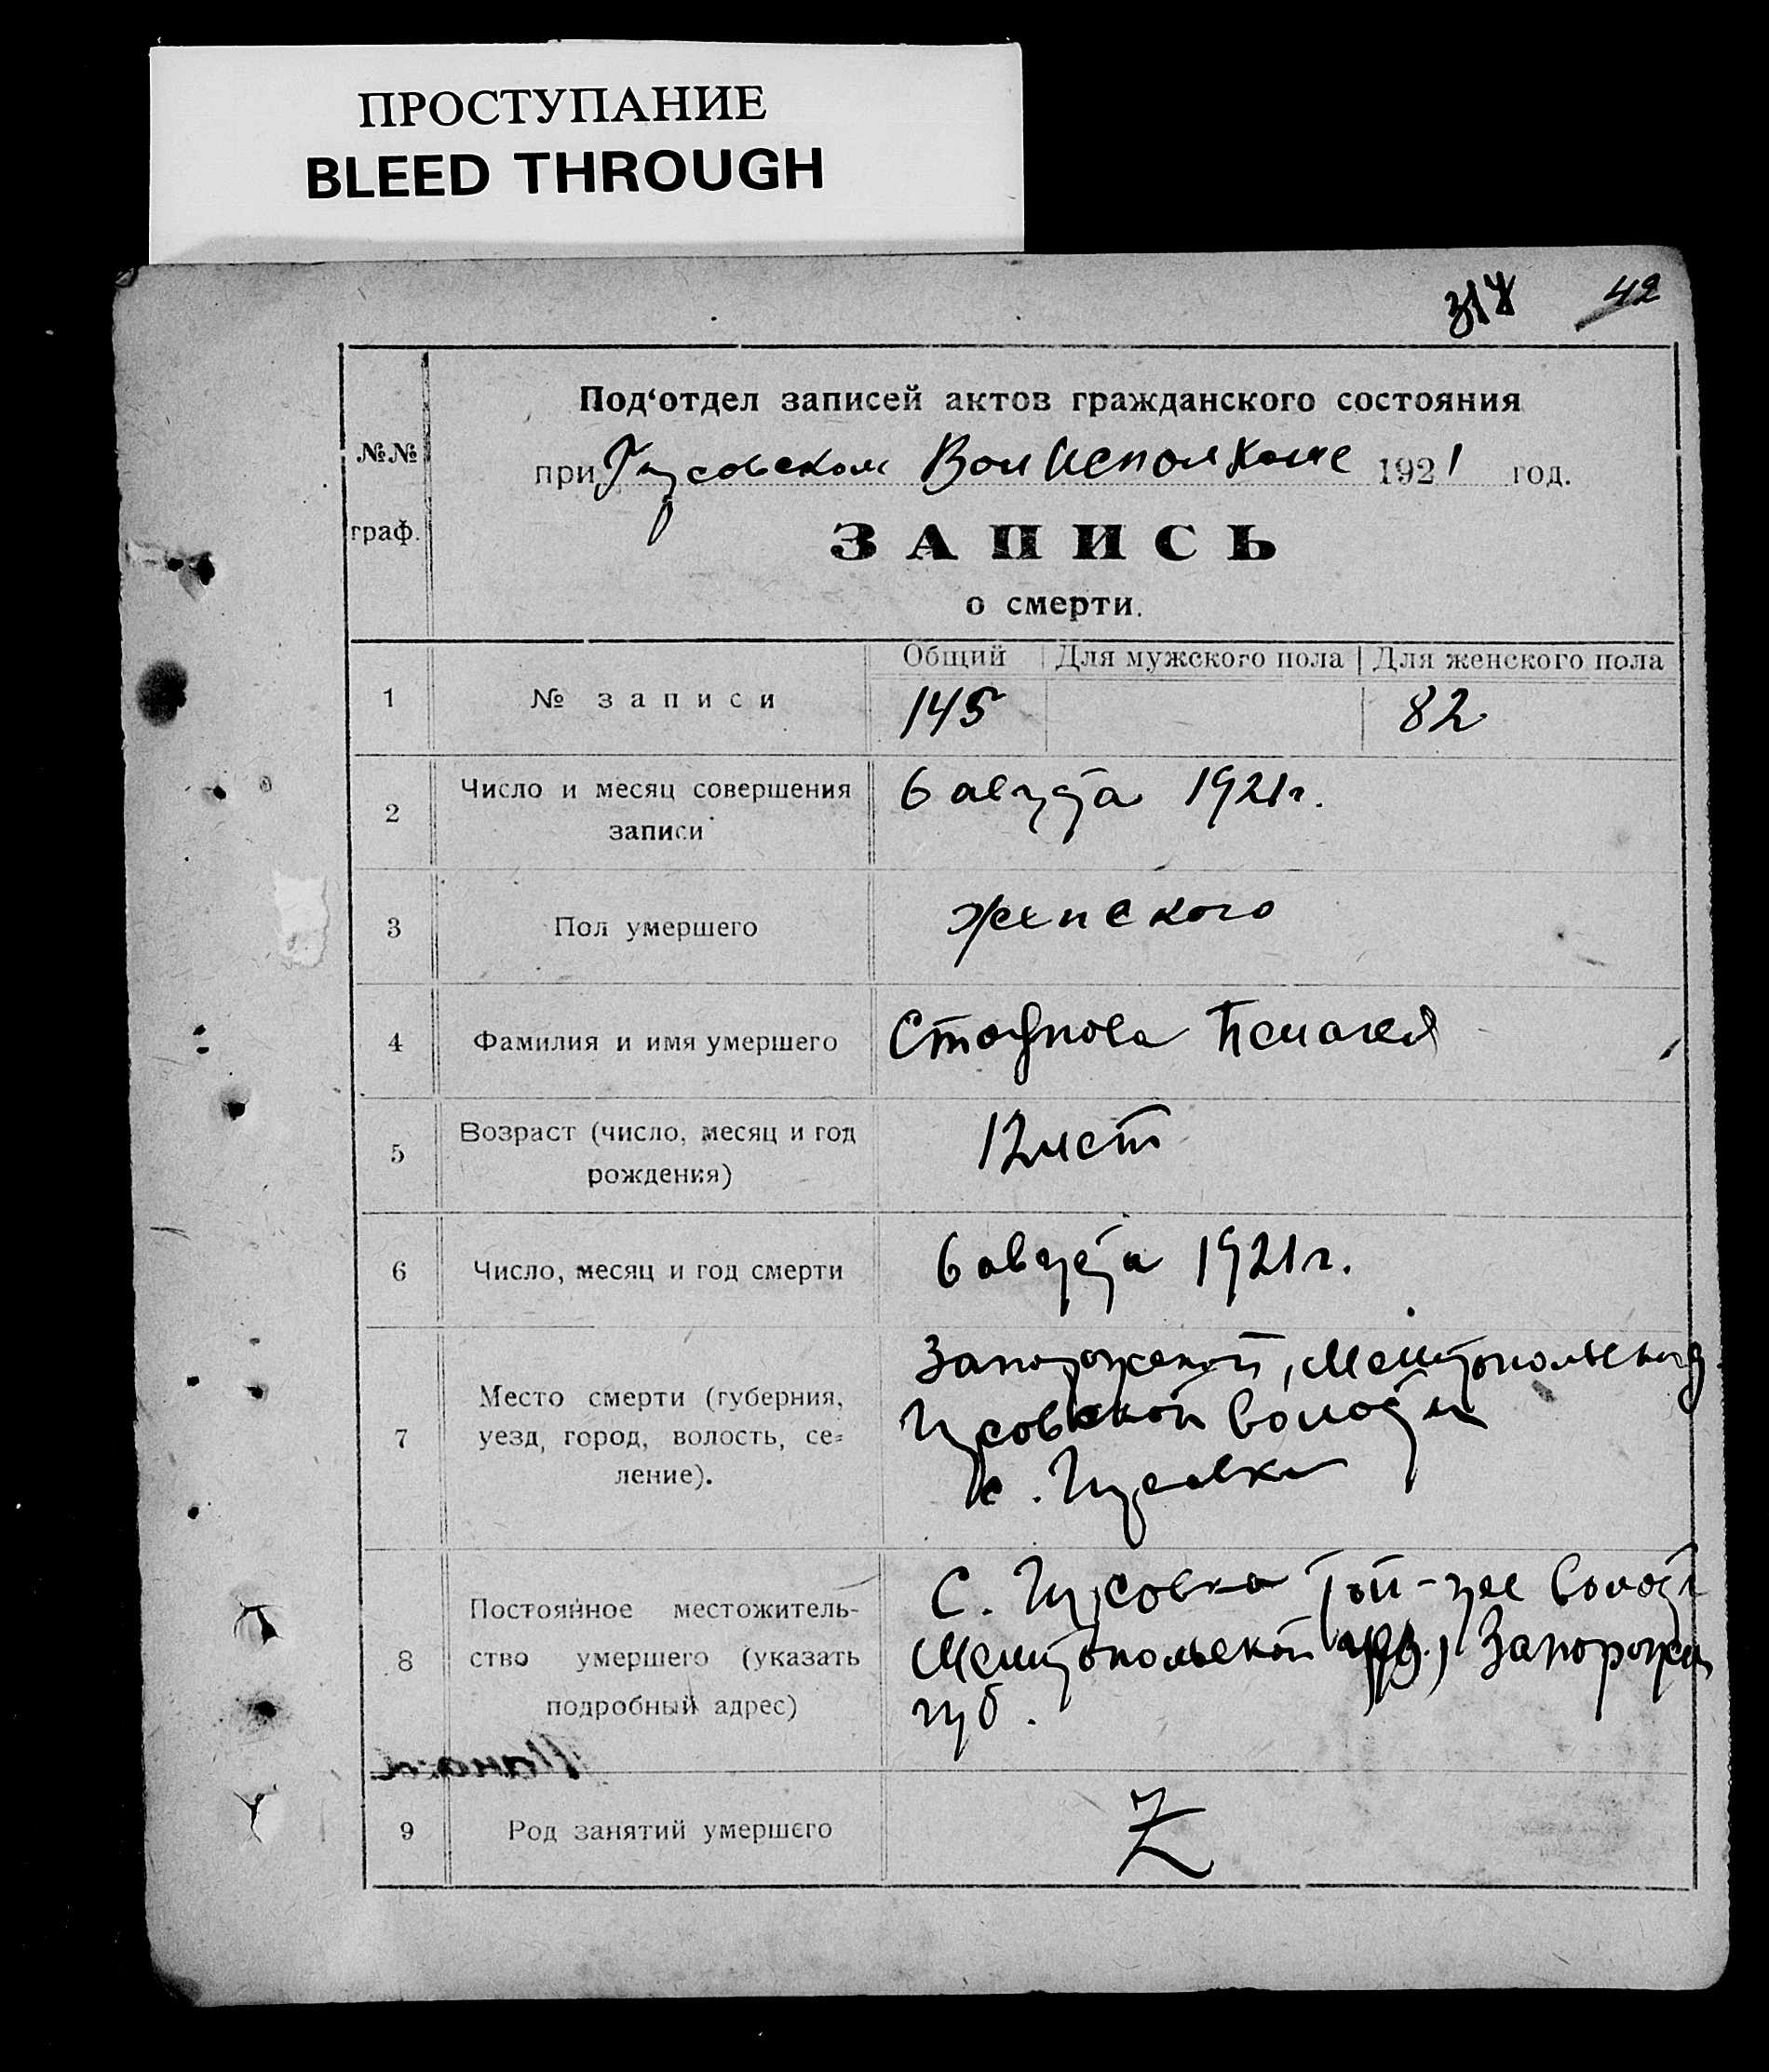 ПРОСТУПАНИЕ
BLEED THROUGH
42
Под‘отдел записей актов гражданского состояния
№№
при Гусовском Волисполкоме 1921 год.
граф.
ЗАПИСЬ
о смерти.
Общий Для мужского пола Для женского пола
1 № записи 145 82
2 Число и месяц совершения записи 6 августа 1921 г.
3 Пол умершего женского
4 Фамилия и имя умершего Пелагея
5 Возраст (число, месяц и год рождения) 12 лет
6 Число, месяц и год смерти 6 августа 1921 г.
7 Место смерти (губерния, уезд, город, волость, се=ление).
Запорожской, Мелитопольск
волости
с.
8 Постоянное местожитель-ство умершего (указать подробный адрес)
С. той-же волости
Мелитопольской уезд., Запорожск
губ.
9 Род занятий умершего Z